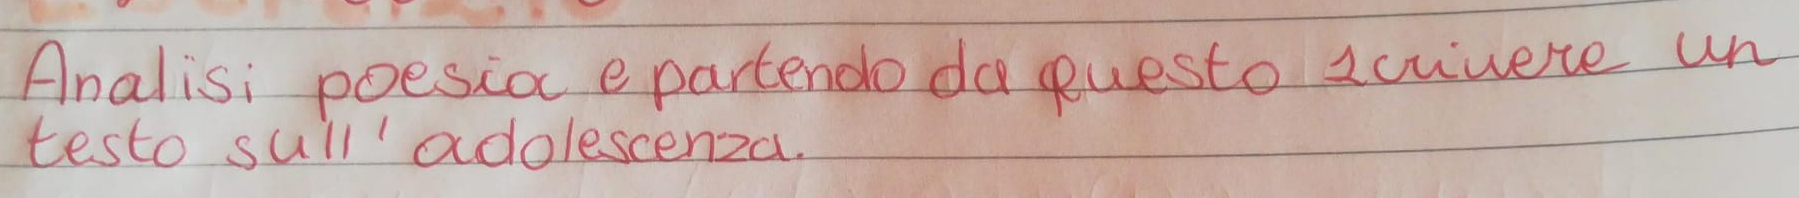 Analisi poesia e partendo da questo scrivere un
testo sull'adolescenza.